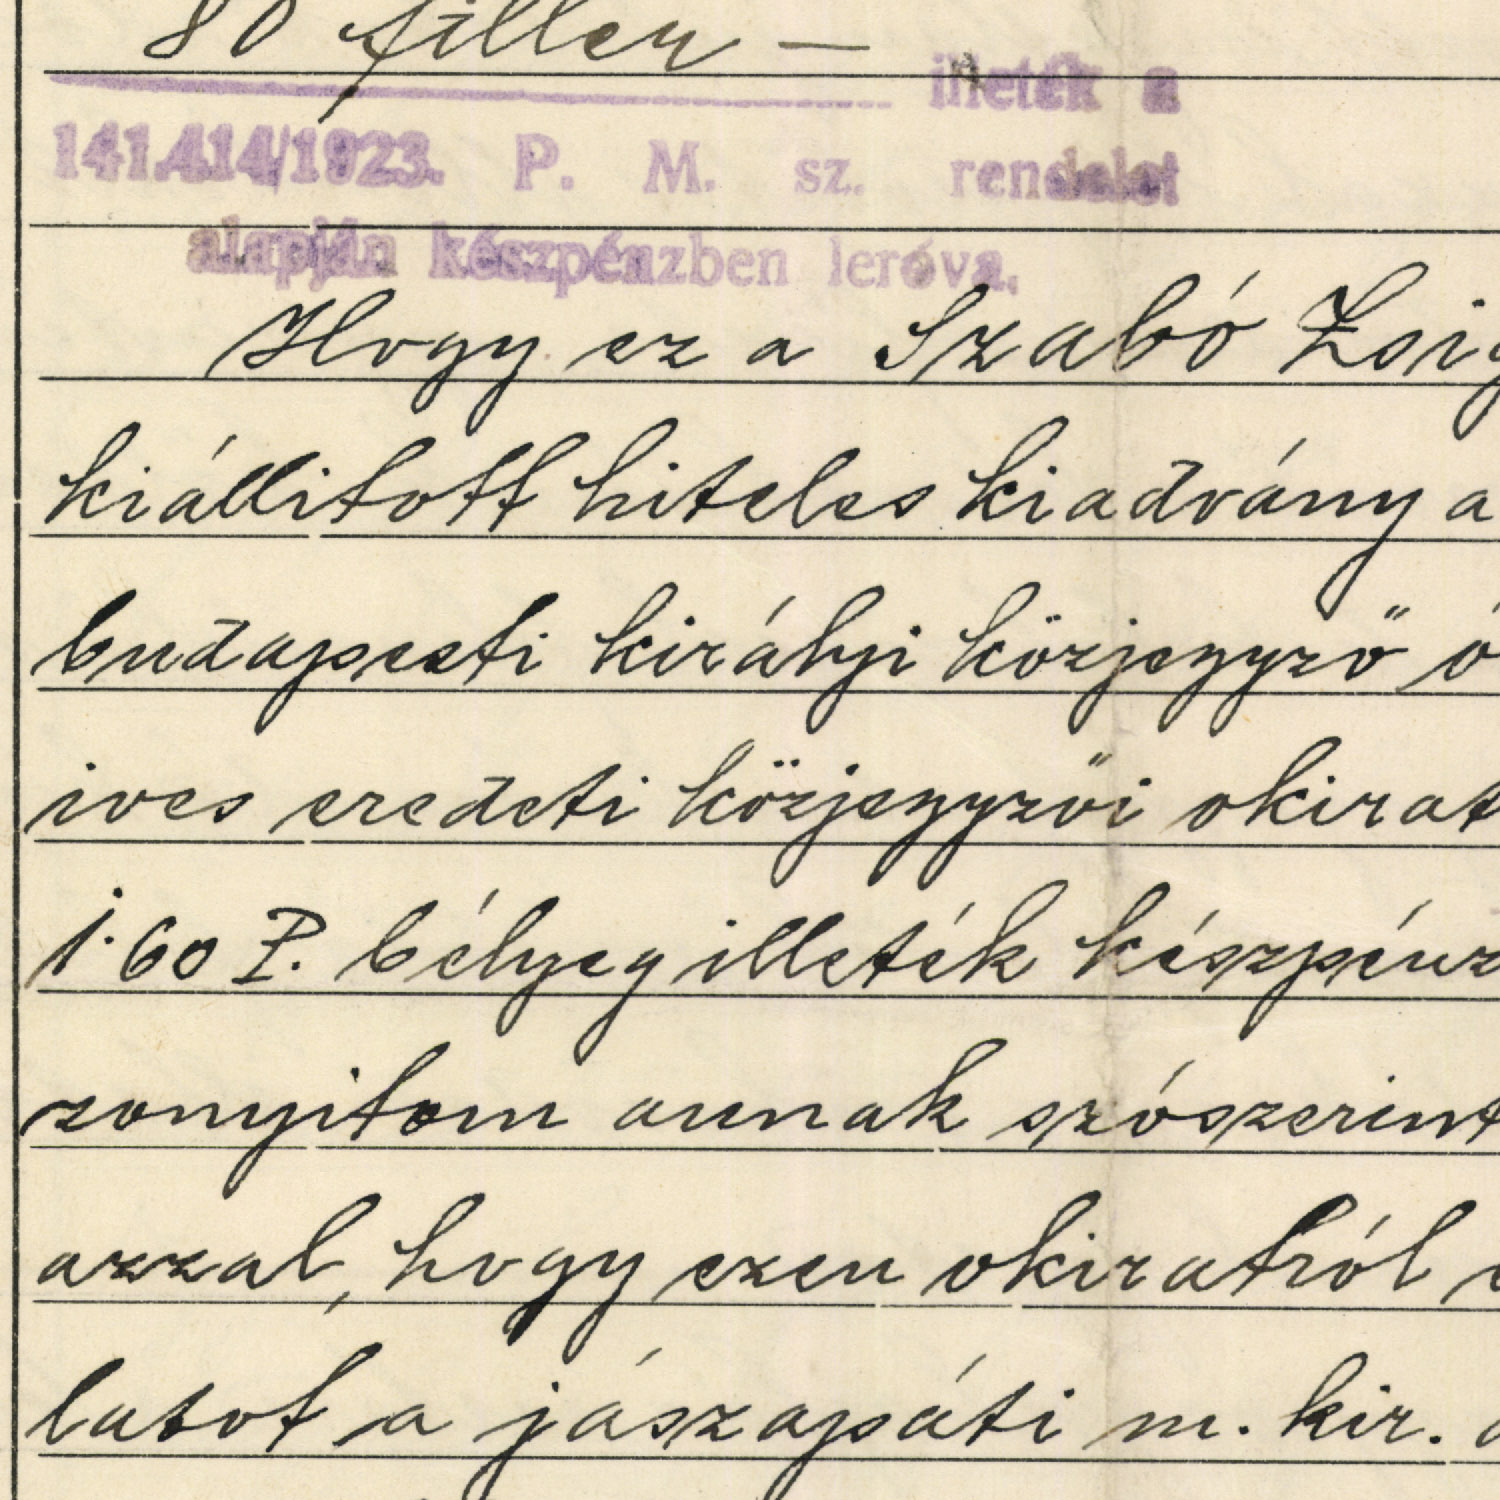 80 fillér —
illeték a
141.414/1923. P. M. sz. rendelet
alapján készpénzben leróva.
Hogy ez a Szabó Zsig
kiállitott hiteles kiadvány a
budapesti királyi közjegyző ó
ives eredeti közjegyzői okirat
1·60 P. bélyegilleték készpénz
zonyitom annak szószerint
azzal, hogy ezen okiratról
latot a jászapáti m. kir.